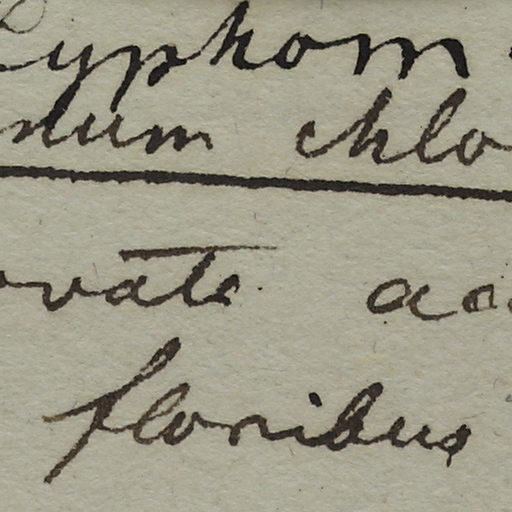 Cyphom
dum chlo
ovate ac
floribus